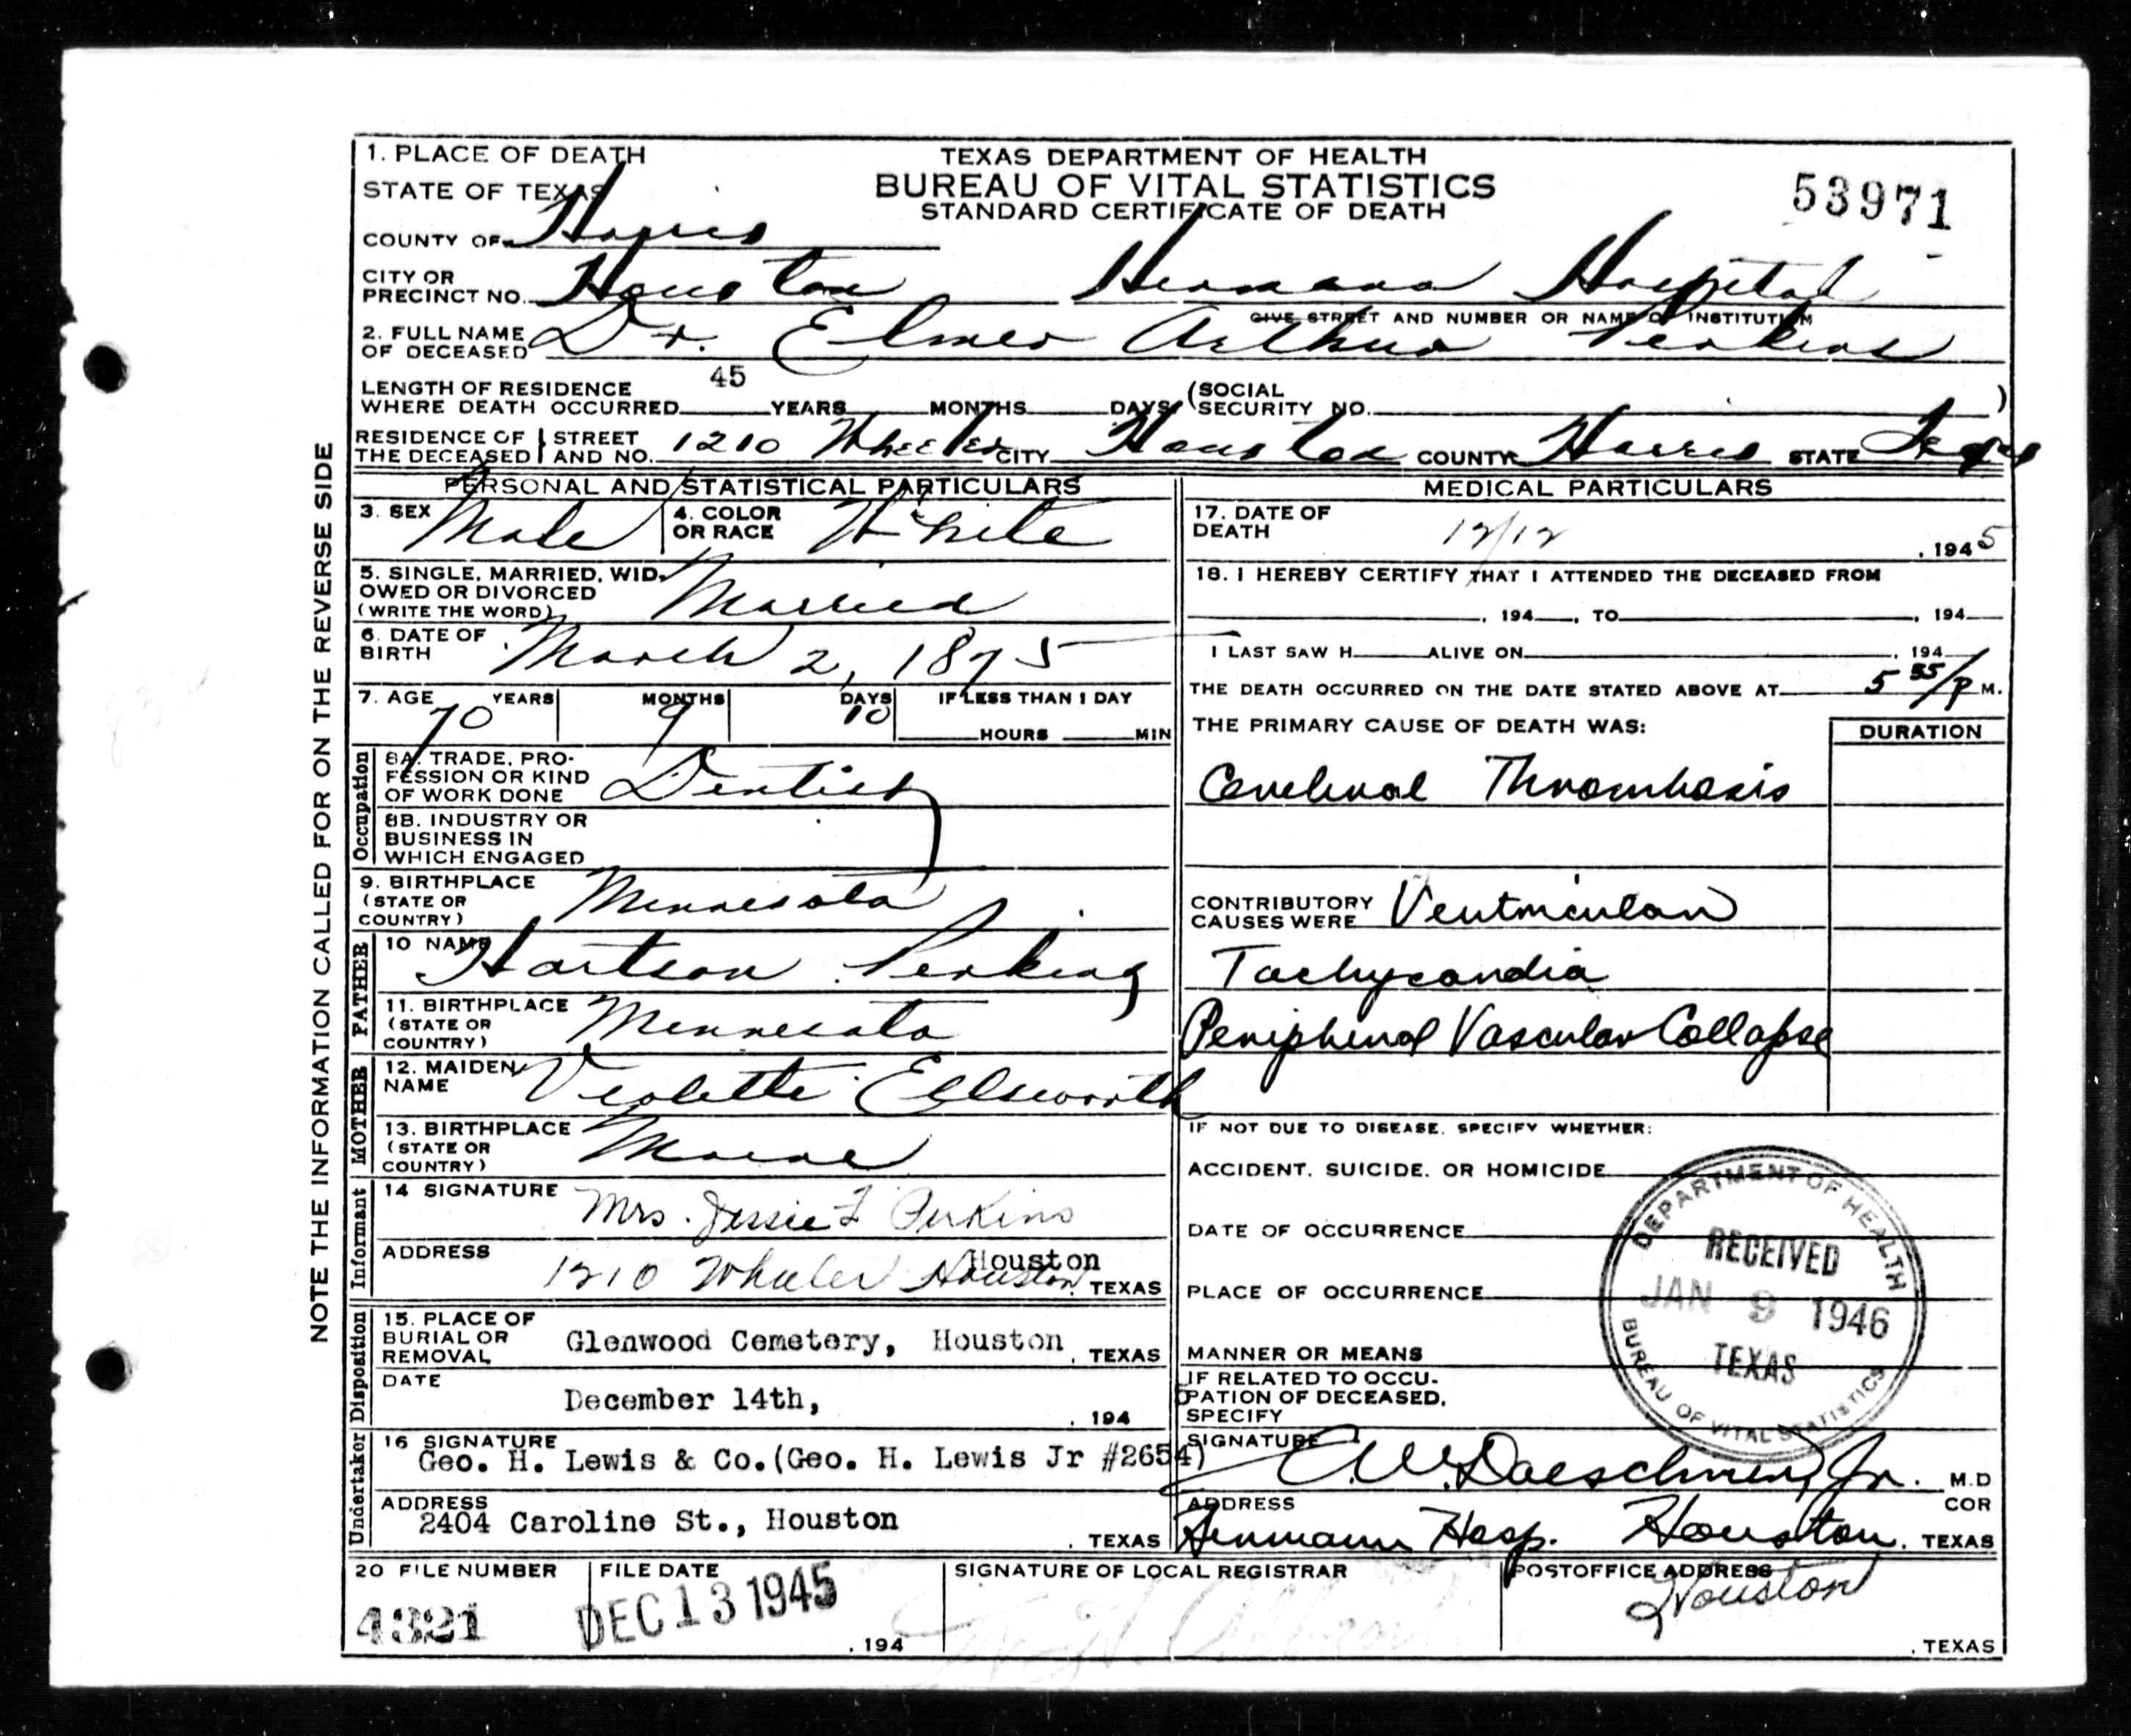 1. PLACE OF DEATH
STATE OF TEXAS
TEXAS DEPARTMENT OF HEALTH
BUREAU OF VITAL STATISTICS
STANDARD CERTIFICATE OF DEATH
53971
COUNTY OF Harris
CITY OR PRECINCT NO. Houston Hermann Hospital
GIVE STREET AND NUMBER OR NAME OF INSTITUTION
2. FULL NAME OF DECEASED Dr. Elmer Arthur Perkins
LENGTH OF RESIDENCE WHERE DEATH OCCURRED 45 YEARS MONTHS DAYS (SOCIAL SECURITY NO. )
RESIDENCE OF THE DECEASED STREET AND NO. 1210 Wheeler CITY Houston COUNTY Harris STATE Texas
NOTE THE INFORMATION CALLED FOR ON THE REVERSE SIDE
PERSONAL AND STATISTICAL PARTICULARS
3. SEX Male 4. COLOR OR RACE White
5. SINGLE, MARRIED, WIDOWED OR DIVORCED (WRITE THE WORD) Married
6. DATE OF BIRTH March 2, 1875
7. AGE 70 YEARS 9 MONTHS 10 DAYS IF LESS THAN 1 DAY
HOURS MIN
Occupation
8A. TRADE, PROFESSION OR KIND OF WORK DONE Dentist
8B. INDUSTRY OR BUSINESS IN WHICH ENGAGED
9. BIRTHPLACE (STATE OR COUNTRY) Minnesota
FATHER
10 NAME Hartson Perkins
11. BIRTHPLACE (STATE OR COUNTRY) Minnesota
MOTHER
12. MAIDEN NAME Violette Ellsworth
13. BIRTHPLACE (STATE OR COUNTRY) Maine
Informant
14 SIGNATURE Mrs. Jessie F Perkins
ADDRESS 1210 Wheeler Houston Houston, TEXAS
Disposition
15. PLACE OF BURIAL OR REMOVAL Glenwood Cemetery, Houston, TEXAS
DATE December 14th, , 194 5
Undertaker
16 SIGNATURE Geo. H. Lewis & Co.(Geo. H. Lewis Jr #2654)
ADDRESS 2404 Caroline St., Houston , TEXAS
MEDICAL PARTICULARS
17. DATE OF DEATH 12/12 , 1945
18. I HEREBY CERTIFY THAT I ATTENDED THE DECEASED FROM
, 194 , TO , 194
I LAST SAW H ALIVE ON , 194
THE DEATH OCCURRED ON THE DATE STATED ABOVE AT 5 55/P M.
THE PRIMARY CAUSE OF DEATH WAS: DURATION
Cerebral Thrombosis
CONTRIBUTORY CAUSES WERE Ventricular
Tachycardia
Peripheral Vascular Collapse
IF NOT DUE TO DISEASE, SPECIFY WHETHER:
ACCIDENT, SUICIDE, OR HOMICIDE
DATE OF OCCURRENCE
PLACE OF OCCURRENCE
MANNER OR MEANS
IF RELATED TO OCCUPATION OF DECEASED, SPECIFY
DEPARTMENT OF HEALTH
RECEIVED
JAN 9 1946
TEXAS
BUREAU OF VITAL STATISTICS
SIGNATURE Jr. M.D
COR
ADDRESS Hermann Hosp. Houston, TEXAS
20 FILE NUMBER 4321
FILE DATE DEC 13 1945 , 194
SIGNATURE OF LOCAL REGISTRAR
POSTOFFICE ADDRESS Houston , TEXAS